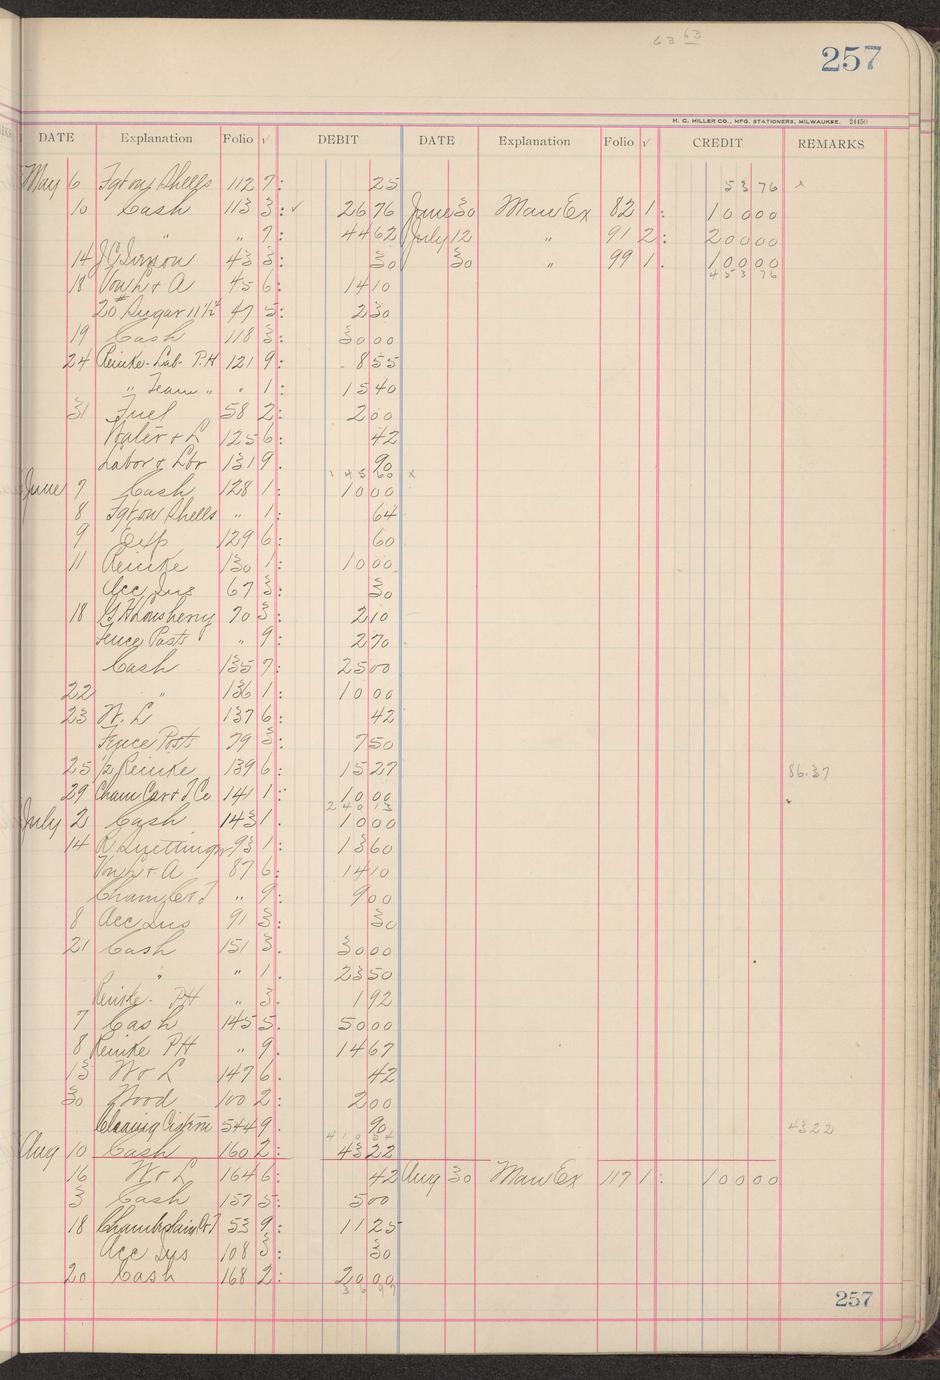 63 63
257
H. C. MILLER CO., MFG. STATIONERS, MILWAUKEE. 24450
DATE Explanation Folio √ DEBIT DATE Explanation Folio √ CREDIT REMARKS
May 6 Fgt on Shells 112 7: 25 53 76 x
10 Cash 113 3: ✓ 26 76 June 30 Man Ex 82 1: 100 00
" " 7: 44 62 July 12 " 91 2: 200 00
14 43 3: 30 30 " 99 1. 100 00
453 76
18 Von L + A 45 6: 14 10
20# Sugar 11½ 47 5: 2 30
19 Cash 118 3: 30 00
24 Reinke - Lab - P.H 121 9: 8 55
" Team " " 1: 15 40
31 Fuel 58 2: 2 00
Water + L 125 6: 42
Labor + Lbr 131 9. 90
x
June 7 Cash 128 1: 10 00
8 Fgt on Shells " 1: 64
9 Exp 129 6: 60
11 Reinke 130 1: 10 00
Acc Ins 67 3: 30
18 G H Lounsberry 70 3: 2 10
Fence Posts " 9: 2 70
Cash 135 7: 25 00
22 " 136 1: 10 00
23 W. L 137 6: 42
Fence Posts 79 3: 7 50
25 ½ Reinke 139 6: 15 27 86.37
29 Cham Car + I Co 141 1: 10 00
240 13
July 2 Cash 143 1. 10 00
14 R 93 1: 13 60
Von L + A 87 6: 14 10
Cham " 9: 9 00
8 Acc Ins 91 3: 30
21 Cash 151 3. 30 00
" " 1. 23 50
Reinke - PH " 3. 1 92
7 Cash 145 5. 50 00
8 Reinke PH " 9. 14 67
13 W + L 147 6. 42
30 Wood 100 2: 2 00
Cleaning Cistern 544 9. 90 43 22
410 54
Aug 10 Cash 160 2: 43 22
16 W + L 164 6: 42 Aug 30 Man Ex 117 1: 100 00
3 Cash 157 5: 5 00
18 Chamberlain 53 9: 11 25
Acc Ins 108 3: 30
20 Cash 168 2: 20 00
36 97
257